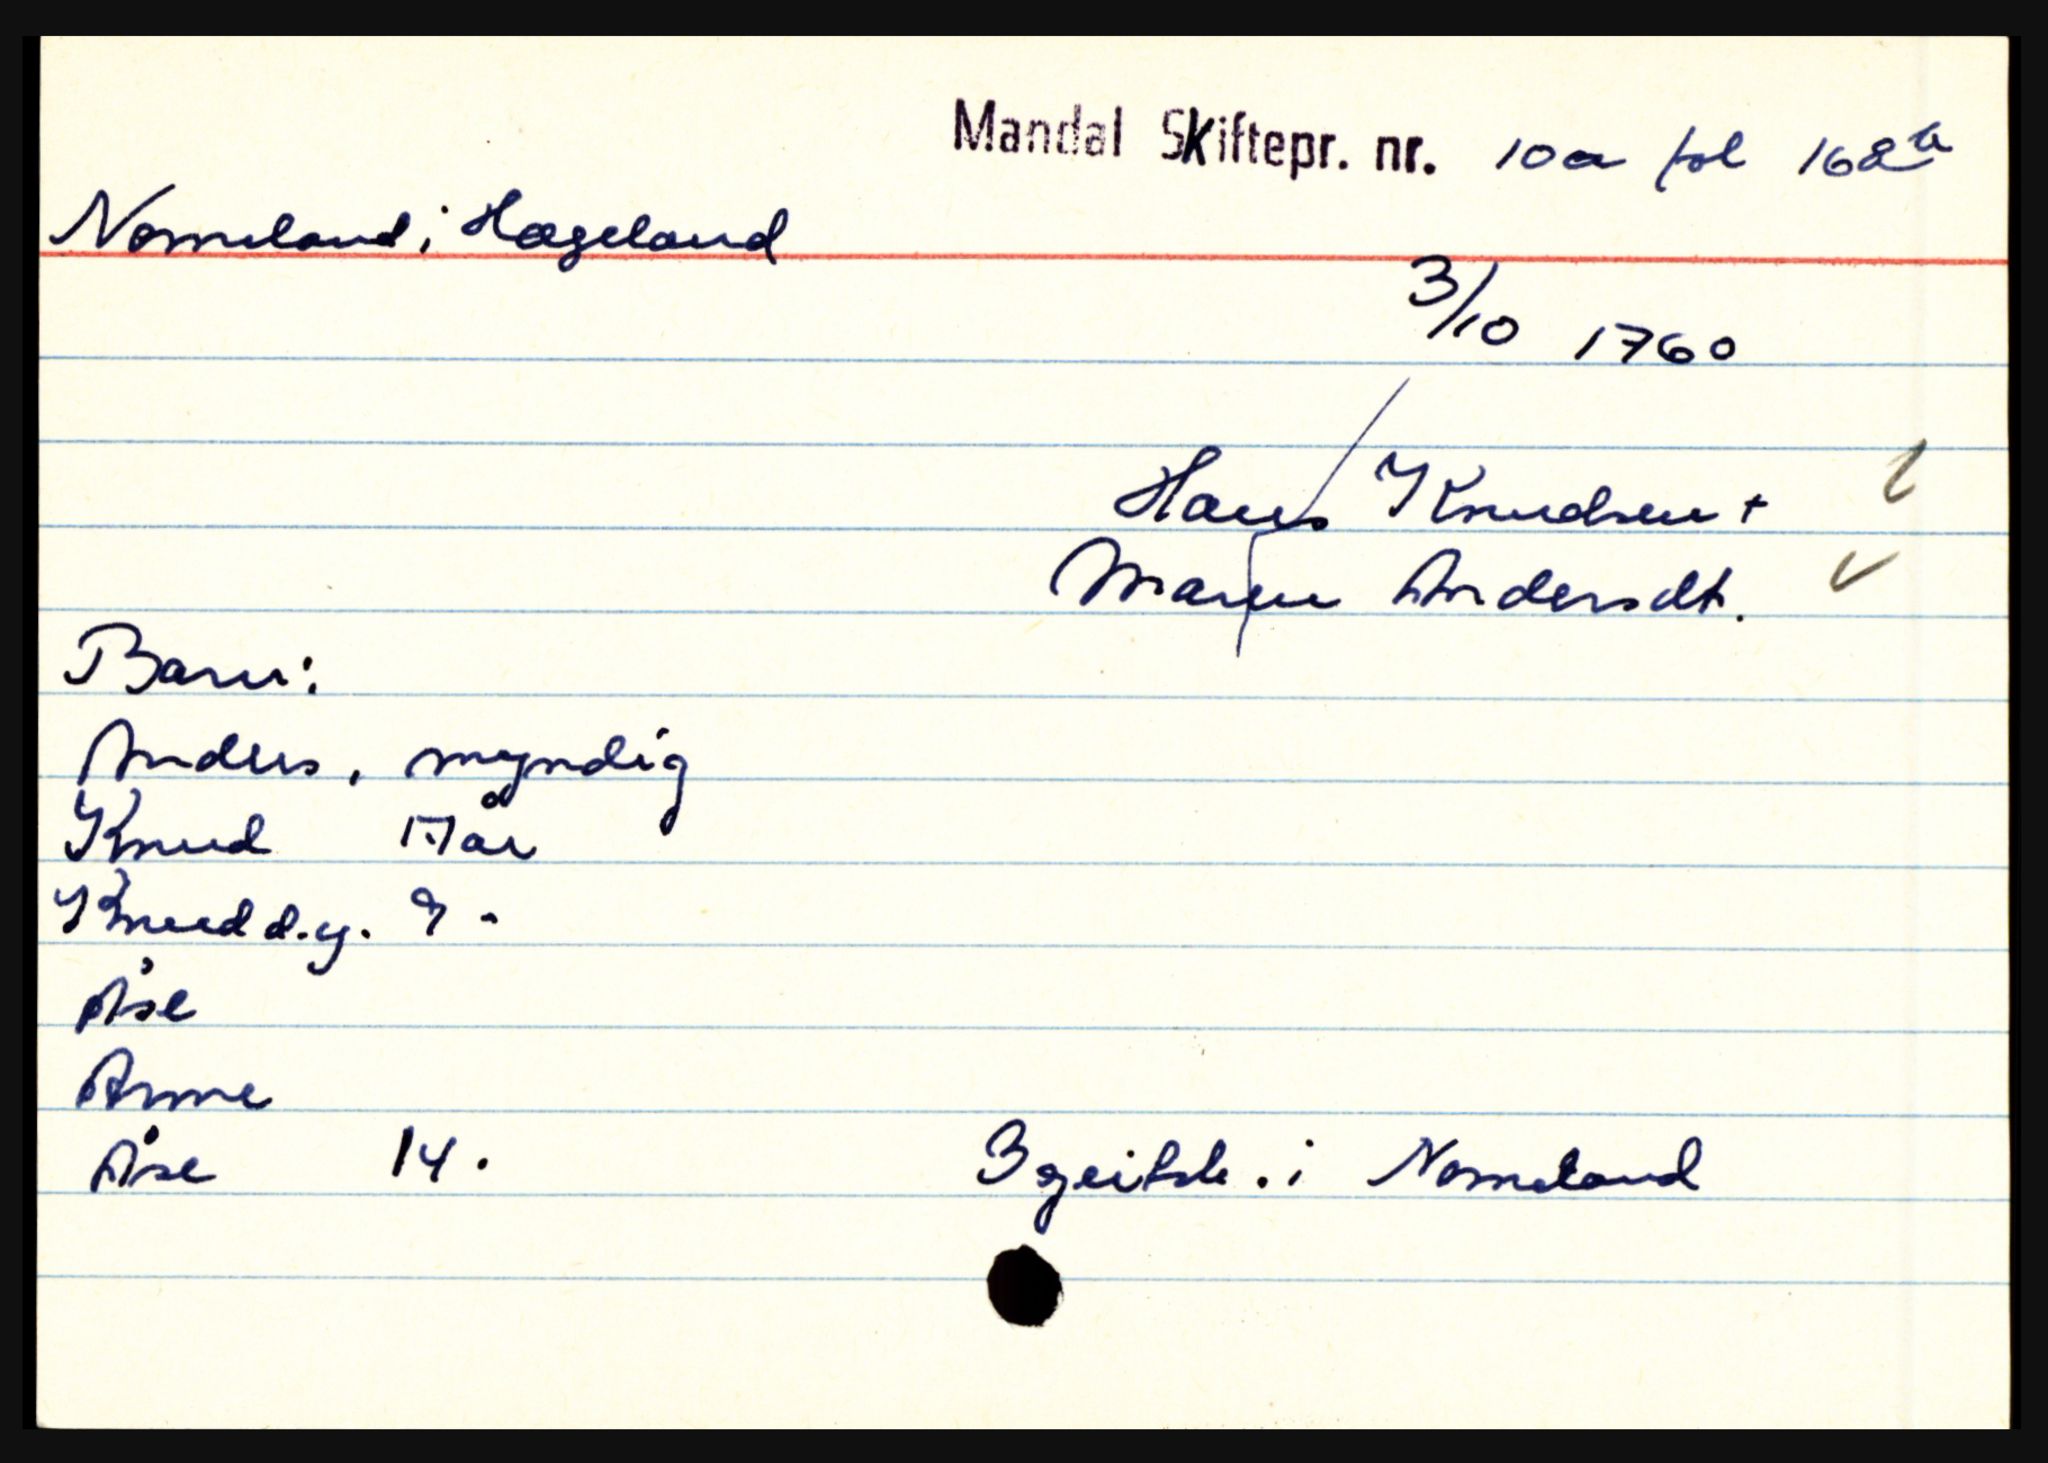 Mandal Skiftepr. nr. 10a fol 168b
Nomeland i Hægeland
3/10 1760
Hans Knudsen +
Maren Andersdt.
Barn:
Anders, myndig
Knud 17 år
Knud d.y. 9 -
Åse
Anne
Åse 14.
3 geitsk. i Nomeland